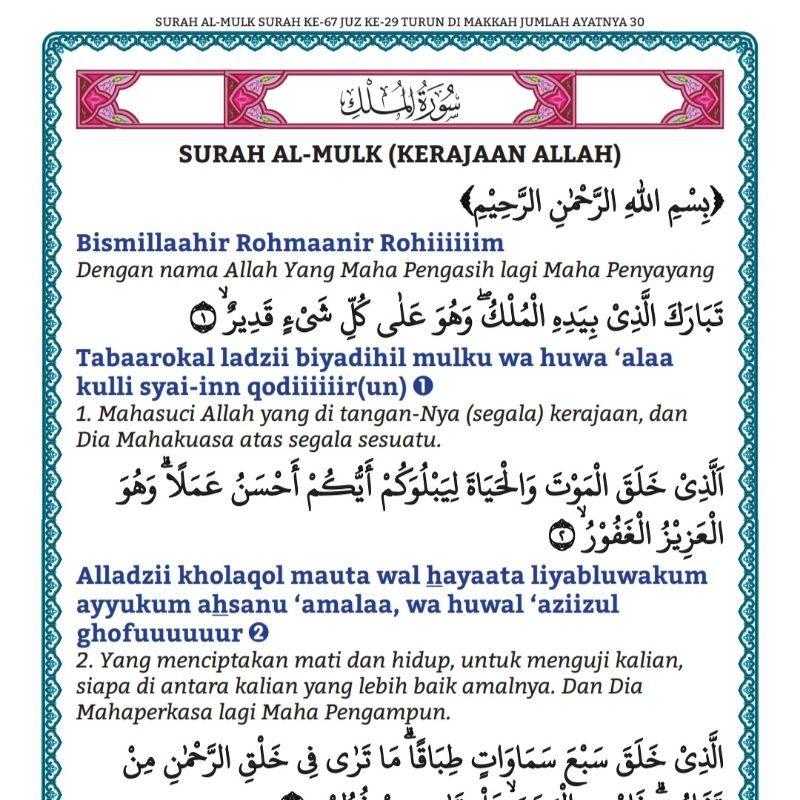 SURAH AL-MULK SURAH KE-67 JUZ KE-29 TURUN DI MAKKAH JUMLAH AYATNYA 30
سُورَةُ الْمُلْكِ
SURAH AL-MULK (KERAJAAN ALLAH)
﴿بِسْمِ اللهِ الرَّحْمٰنِ الرَّحِيْمِ﴾
Bismillaahir Rohmaanir Rohiiiiiim
Dengan nama Allah Yang Maha Pengasih lagi Maha Penyayang
تَبَارَكَ الَّذِيْ بِيَدِهِ الْمُلْكُۖ وَهُوَ عَلٰى كُلِّ شَيْءٍ قَدِيْرٌۙ ۝١
Tabaarokal ladzii biyadihil mulku wa huwa ‘alaa
kulli syai-inn qodiiiiiir(un) ❶
1. Mahasuci Allah yang di tangan-Nya (segala) kerajaan, dan
Dia Mahakuasa atas segala sesuatu.
اَلَّذِيْ خَلَقَ الْمَوْتَ وَالْحَيَاةَ لِيَبْلُوَكُمْ أَيُّكُمْ أَحْسَنُ عَمَلًاۗ وَهُوَ
الْعَزِيْزُ الْغَفُوْرُۙ ۝٢
Alladzii kholaqol mauta wal hayaata liyabluwakum
ayyukum ahsanu ‘amalaa, wa huwal ‘aziizul
ghofuuuuuur ❷
2. Yang menciptakan mati dan hidup, untuk menguji kalian,
siapa di antara kalian yang lebih baik amalnya. Dan Dia
Mahaperkasa lagi Maha Pengampun.
الَّذِيْ خَلَقَ سَبْعَ سَمَاوَاتٍ طِبَاقًاۗ مَا تَرٰى فِي خَلْقِ الرَّحْمٰنِ مِنْ